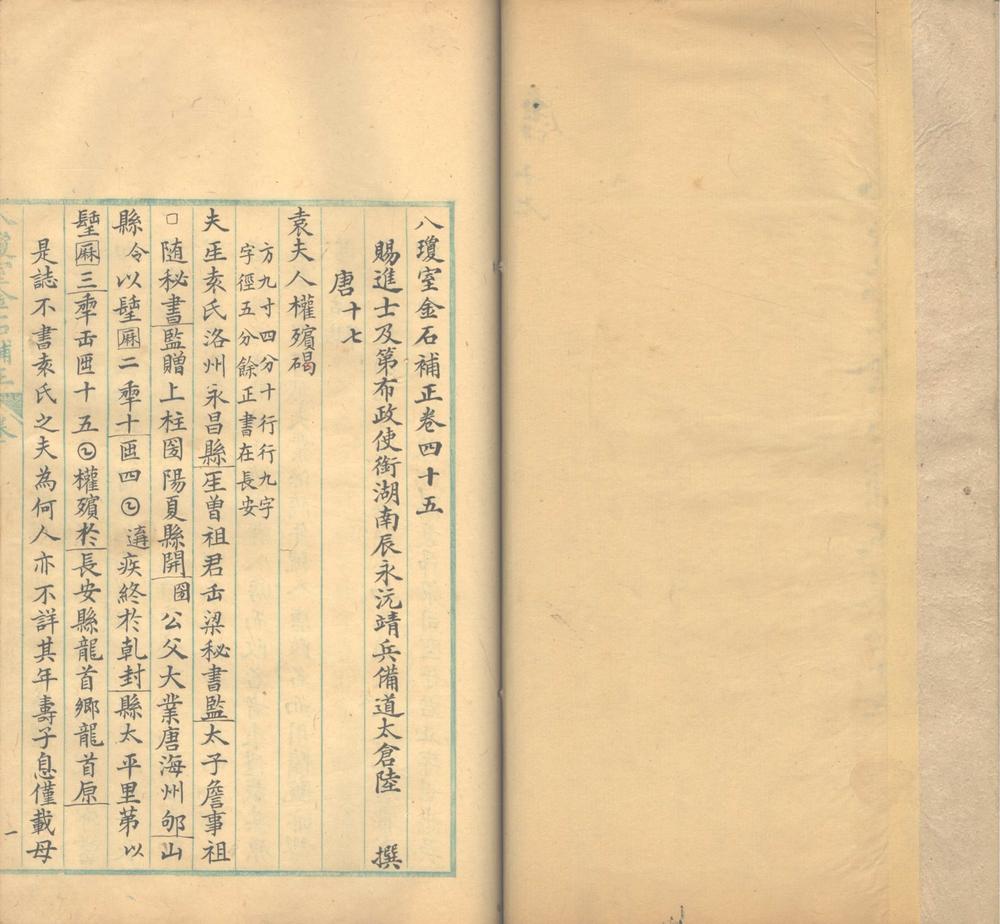 八瓊室金石補正卷四十五
賜進士及第布政使銜湖南辰永沅靖兵備道太倉陸 撰
唐十七
袁夫人權殯碣
方九寸四分十行行九字
字徑五分餘正書在長安
夫𤯔袁氏洛州永昌縣𤯔曾祖君𠺞梁秘書監太子詹事祖
□随秘書監贈上柱圀陽夏縣開圀公父大業唐海州郇山
縣令以𨲢厤二𠡦十𠥱四𡆠遘疾終於乹封縣太平里苐以
𨲢厤三𠡦𠀺𠥱十五𡆠權殯於長安縣龍首鄉龍首原
是誌不書袁氏之夫為何人亦不詳其年壽子息僅載母
一